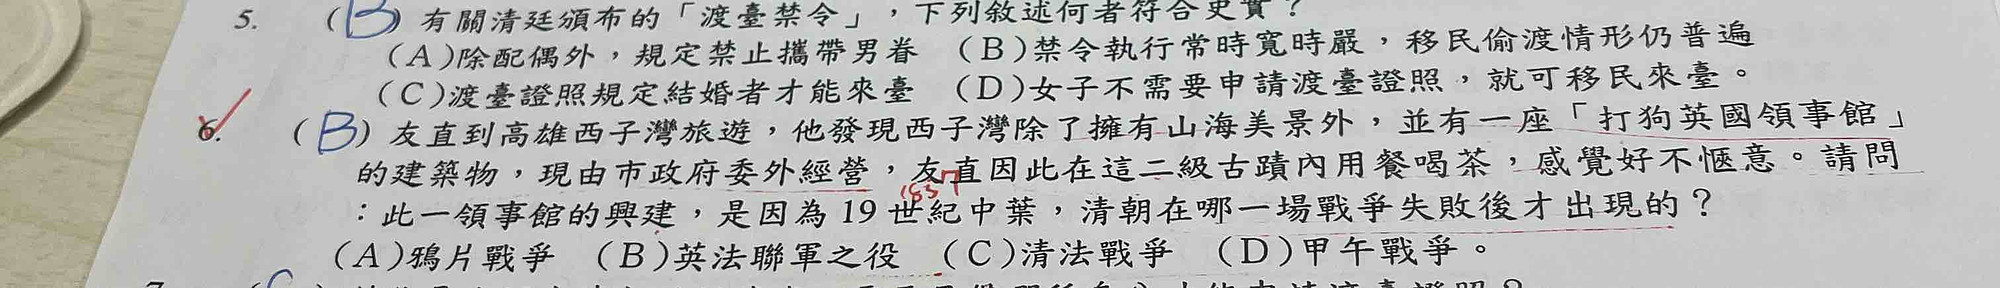 5. (B) 有關清廷頒布的「渡臺禁令」,下列敘述何者符合史實?
(A)除配偶外,規定禁止攜帶男眷 (B)禁令執行常時寬時嚴,移民偷渡情形仍普遍
(C)渡臺證照規定結婚者才能來臺 (D)女子不需要申請渡臺證照,就可移民來臺。
6. (B) 友直到高雄西子灣旅遊,他發現西子灣除了擁有山海美景外,並有一座「打狗英國領事館」
的建築物,現由市政府委外經營,友直因此在這二級古蹟內用餐喝茶,感覺好不愜意。請問
1857
:此一領事館的興建,是因為 19 世紀中葉,清朝在哪一場戰爭失敗後才出現的?
(A)鴉片戰爭 (B)英法聯軍之役 (C)清法戰爭 (D)甲午戰爭。